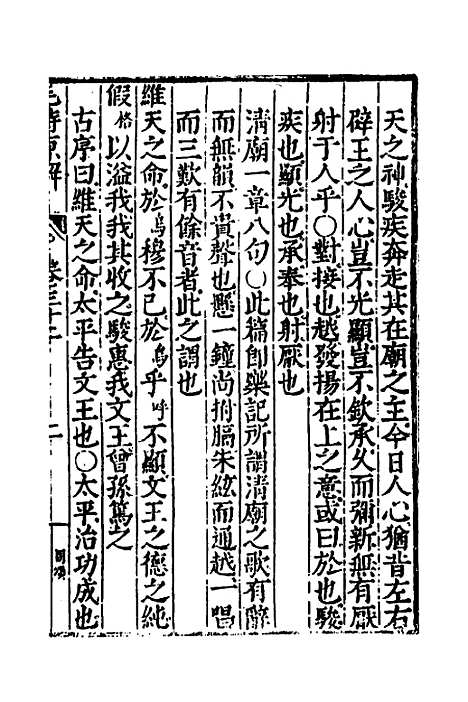 天之神駿疾奔走其在廟之主今日人心猶昔左右
辟王之人心豈不光顯豈不欽承乆而彌新無有厭
射于人乎○對接也越發揚在上之意或曰於也駿
疾也顯光也承奉也射厭也
淸廟一章八句○此篇卽樂記所謂淸廟之歌有辭
而無韻不貴聲也懸一鐘尚拊膈朱絃而通越一唱
而三歎有餘音者此之謂也
維天之命於烏穆不已於烏乎呼不顯文王之德之純
假格以溢我我其收之駿惠我文王曾孫篤之
古序曰維天之命太平告文王也○太平治功成也
毛詩原解 卷三十二 二 周頌